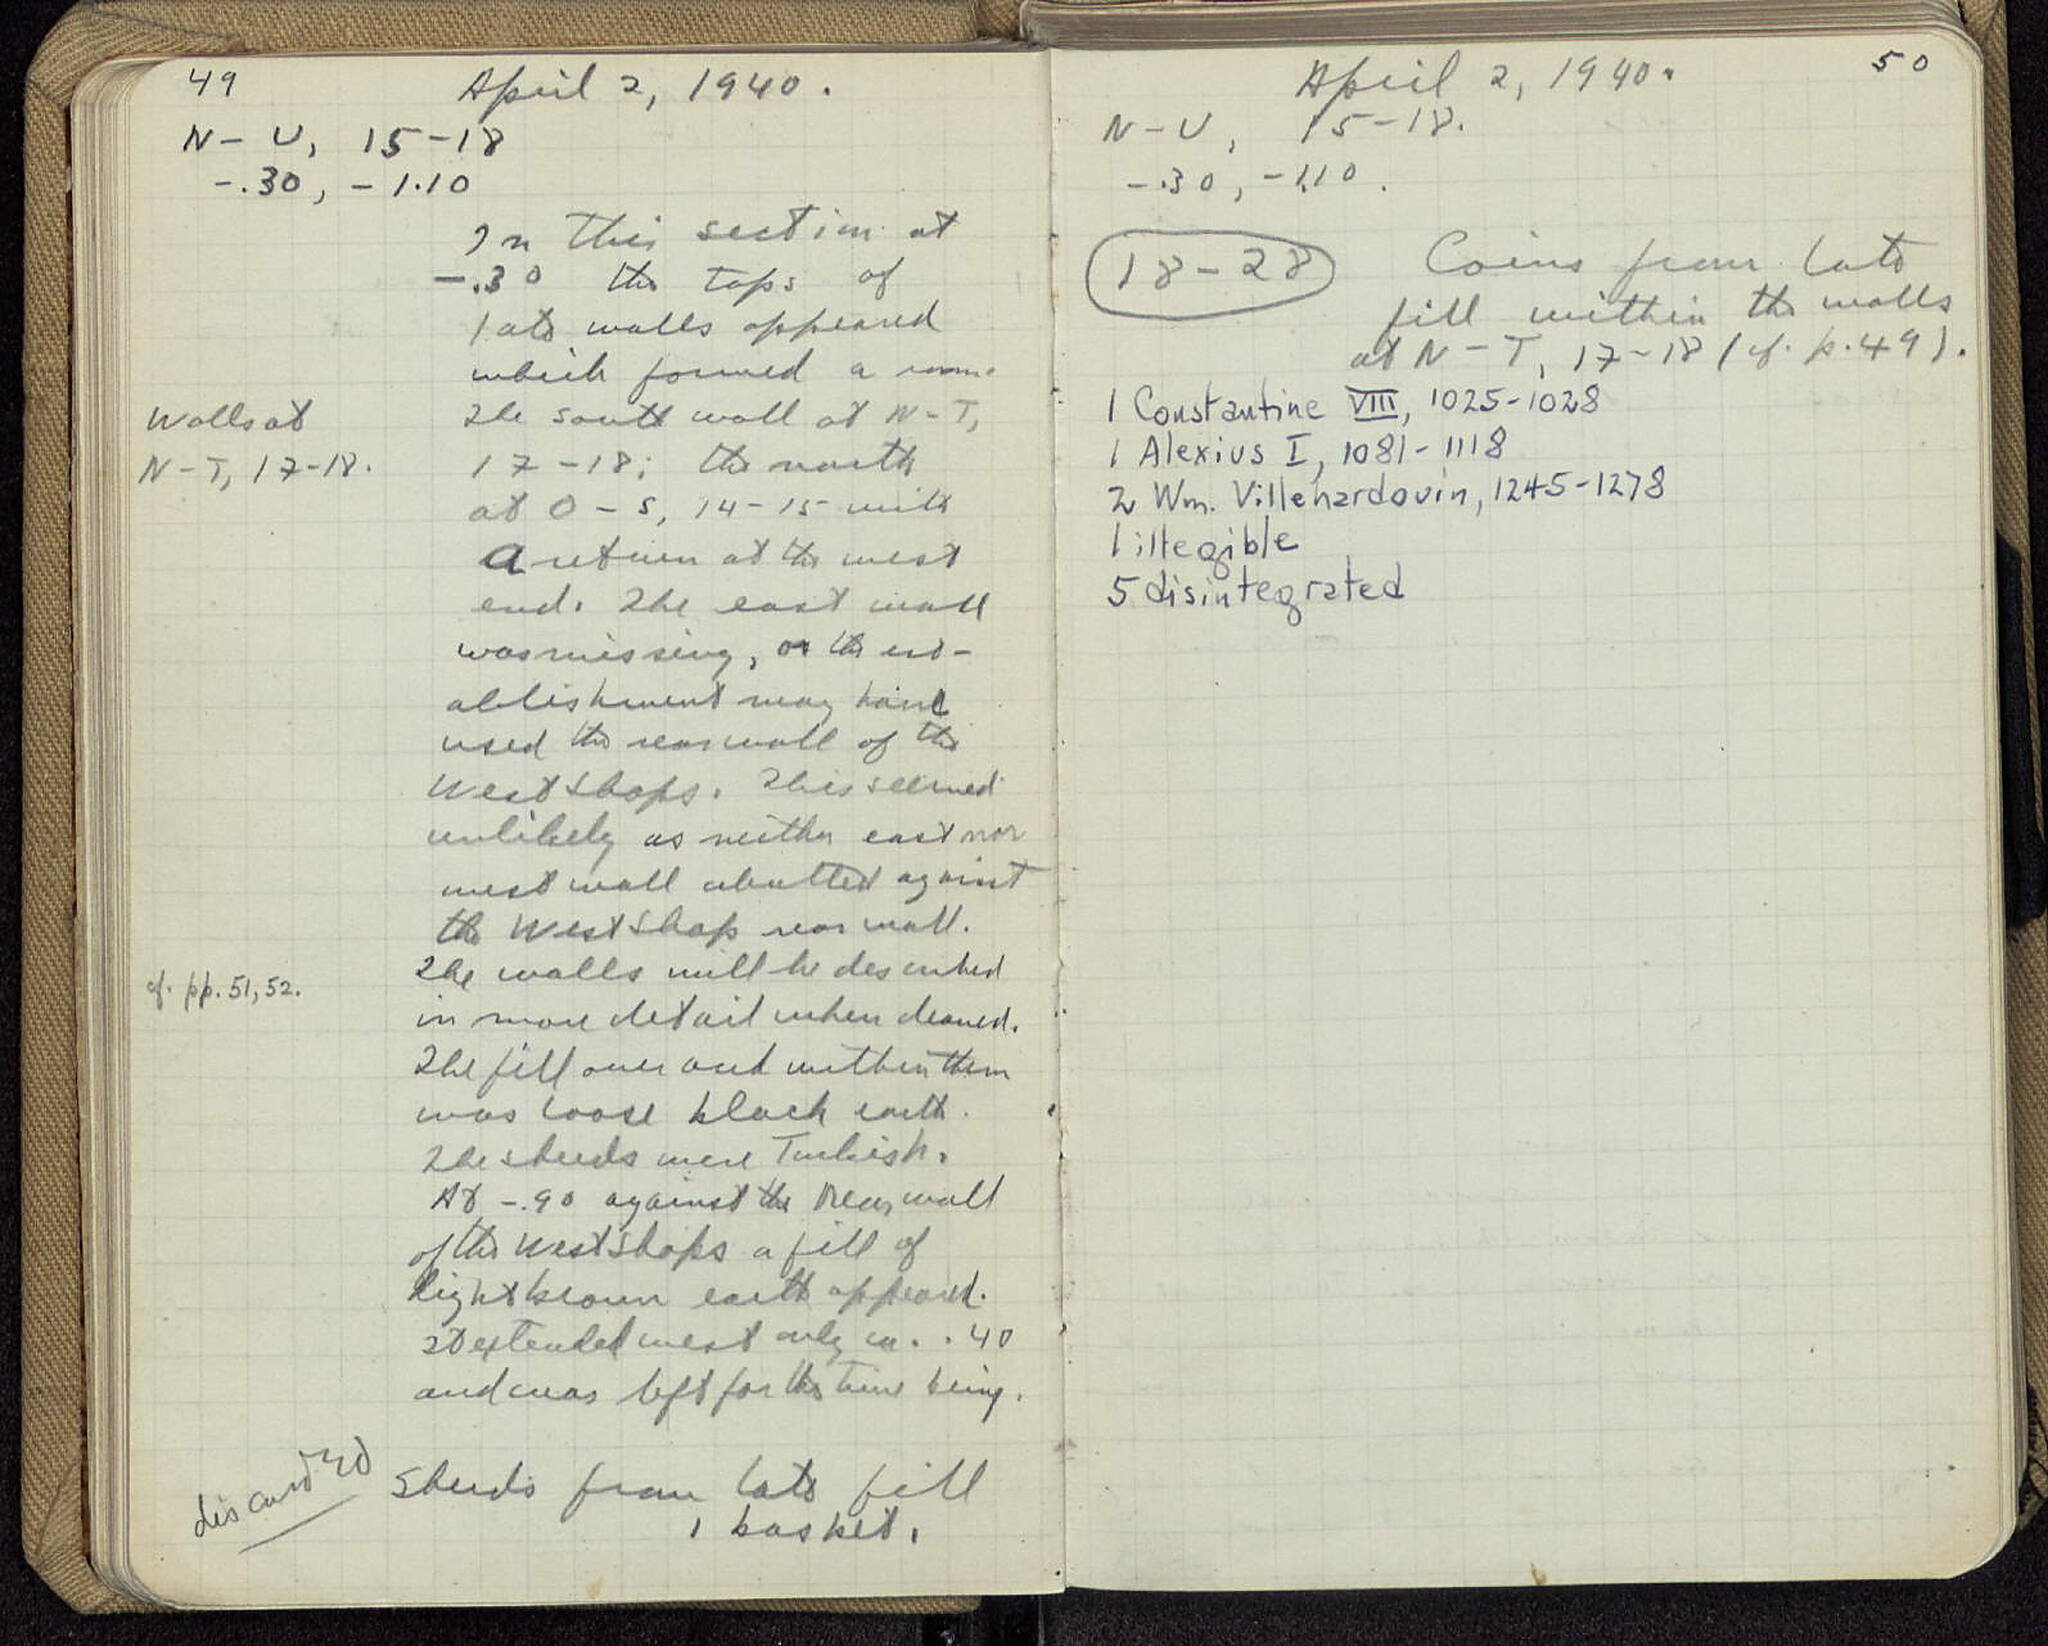 49
April 2, 1940.
N-U, 15-18
-.30, -1.10
In this section at
-.30 the tops of
late walls appeared
which formed a room.
Walls at
N-T, 17-18.
The south wall at N-T,
17-18; the north
at O-S, 14-15 with
a return at the west
end. The east wall
was missing, or the est-
ablishment may have
used the rear wall of the
West Shops. This seemed
unlikely as neither east nor
west wall abutted against
the West Shop rear wall.
cf. pp. 51, 52.
The walls will be described
in more detail when cleaned.
The fill over and within them
was loose black earth.
The sherds were Turkish.
At -.90 against the rear wall
of the West Shops a fill of
light brown earth appeared.
It extended west only ca. .40
and was left for the time being.
discarded
Sherds from late fill
1 basket.
April 2, 1940.
50
N-U, 15-18.
-.30, -1.10.
18-28
Coins from late
fill within the walls
at N-T, 17-18 (cf. p. 49).
1 Constantine VIII, 1025-1028
1 Alexius I, 1081-1118
2 Wm. Villehardouin, 1245-1278
1 illegible
5 disintegrated